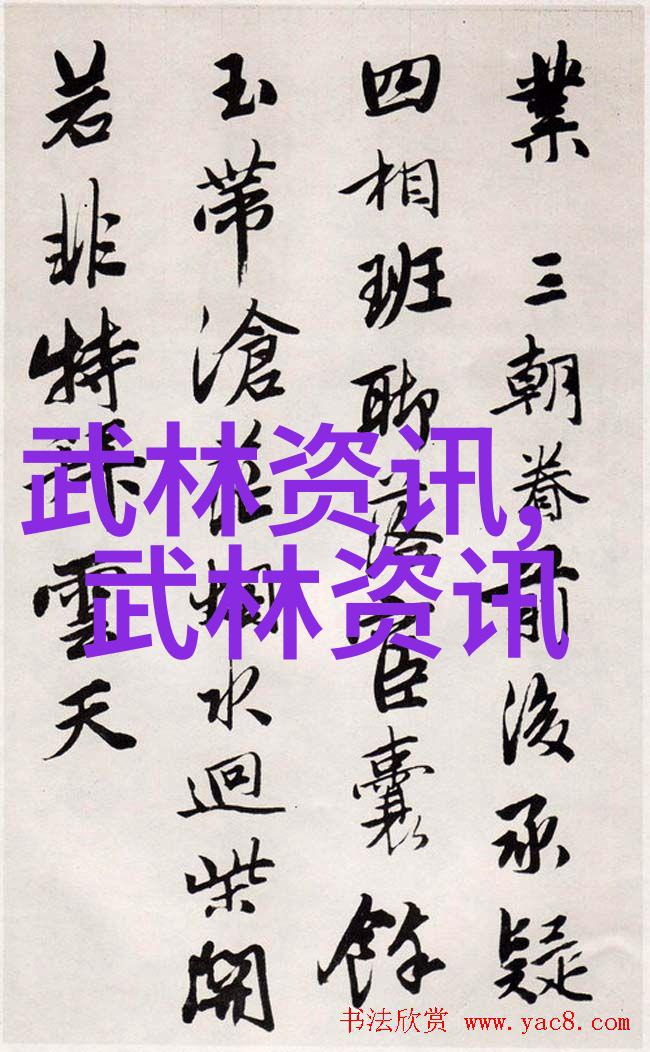 業 三朝眷前後承疑
四相班聊落臣囊餘
玉帶滄水迴柴開
若非特雲天
武林资讯,
武林资讯
书法欣赏 www.yac8.com